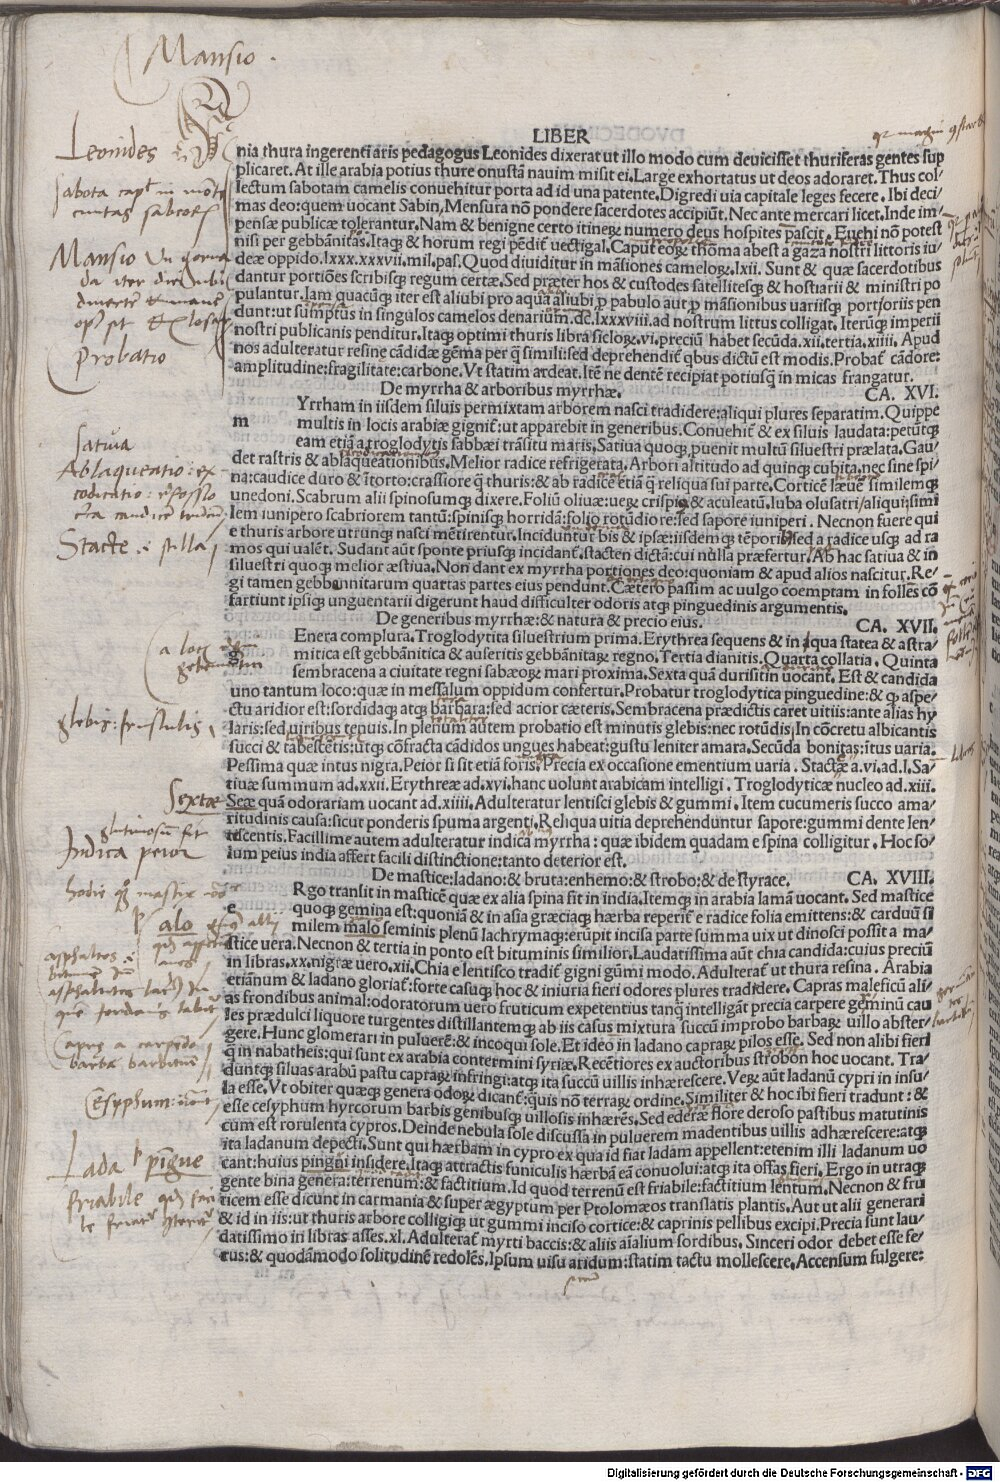 Mansio
LIBER
nia thura ingerenti aris pedagogus Leonides dixerat ut illo modo cum deuicisset thuriferas gentes sup
plicaret. At ille arabia potius thure onustā nauim misit ei. Large exhortatus ut deos adoraret. Thus col/
lectum sabotam camelis conuehitur porta ad id una patente. Digredi uia capitale leges fecere. Ibi deci/
mas deo: quem uocant Sabin, Mensura nō pondere sacerdotes accipiūt. Nec ante mercari licet. Inde im/
pensæ publicæ tolerantur. Nam & benigne certo itineꝝ numero deus hospites pascit. Euehi nō potest
nisi per gebbānitas. Itaqꝫ & horum regi pēdit̄ uectigal. Caput eoꝝ thōma abest a gaza nostri littoris iu/
deæ oppido. lxxx.xxxvii. mil. pas. Quod diuiditur in māsiones cameloꝝ. lxii. Sunt & quæ sacerdotibus
dantur portiões scribisqꝫ regum certæ. Sed præter hos & custodes satellitesqꝫ & hostiarii & ministri po
pulantur. Iam quacūqꝫ iter est aliubi pro aqua aliubi p̱ pabulo aut p̱ māsionibus uariisqꝫ portforiis pen
dunt: ut sumptus in singulos camelos denariūm. dc.lxxxviii. ad nostrum littus colligat. Iterūqꝫ imperii
nostri publicanis penditur. Itaqꝫ optimi thuris libra sicloꝝ. vi. preciū habet secūda. xii. tertia. xiiii. Apud
nos adulteratur resine cādidæ gēma per q̄ simili: sed deprehendit̄ qbus dictū est modis. Probat̄ cādore:
amplitudine: fragilitate: carbone. Vt statim ardeat. Itē ne dentē recipiat potiusq̄ in micas frangatur.
De myrrha & arboribus myrrhæ. CA. XVI.
m Yrrham in iisdem siluis permixtam arborem nasci tradidere: aliqui plures separatim. Quippe
multis in locis arabiæ gignit̄: ut apparebit in generibus. Conuehit̄ & ex siluis laudata: petūtqꝫ
eam etiā a troglodytis sabbæi trāsitu maris. Satiua quoqꝫ puenit multū siluestri prælata. Gau/
det rastris & ablaqueationibus. Melior radice refrigerata. Arbori altitudo ad quinqꝫ cubita, nec sine spi/
na: caudice duro & ītorto: crassiore q̄ thuris: & ab radicē etiā q̄ reliqua sui parte. Corticē læuē similemqꝫ
unedoni. Scabrum alii spinosumqꝫ dixere. Foliū oliuæ: ueꝝ crispiꝫ & aculeatū. Iuba olusatri/aliqui: simi
lem iunipero scabriorem tantū: spinisqꝫ horridā: folio rotūdiore: sed sapore iuniperi. Necnon fuere qui
e thuris arbore utrunqꝫ nasci mētirentur. Inciduntur bis & ipsæ: iisdemqꝫ tēporib; sed a radice usqꝫ ad ra
mos qui ualēt. Sudant aūt sponte priusqꝫ incidant̄. stacten dictā: cui nulla præfertur. Ab hac satiua & in
siluestri quoqꝫ melior æstiua. Non dant ex myrrha portiones deo: quoniam & apud alios nascitur. Re/
gi tamen gebbannitarum quartas partes eius pendunt. Cætero passim ac uulgo coemptam in folles cō
fartiunt ipsiqꝫ unguentarii digerunt haud difficulter odoris atqꝫ pinguedinis argumentis.
De generibus myrrhæ: & natura & precio eius. CA. XVII.
g Enera complura. Troglodytita siluestrium prima. Erythrea sequens & in qua statea & astra/
mitica est gebbānitica & auseritis gebbānitaꝝ regno. Tertia dianitis. Quarta collatia. Quinta
sembracena a ciuitate regni sabæoꝝ mari proxima. Sexta quā durisitin uocant. Est & candida
uno tantum loco: quæ in messalum oppidum confertur. Probatur troglodytica pinguedine: & qꝫ aspe/
ctu aridior est: sordidaqꝫ atqꝫ barbara: sed acrior cæteris. Sembracena prædictis caret uitiis: ante alias hy
laris: sed uiribus tenuis. In plenum autem probatio est minutis glebis: nec rotūdis. In cōcretu albicantis
succi & tabescētis: utqꝫ cōfracta cādidos ungues habeat: gustu leniter amara. Secūda bonitas: ītus uaria.
Pessima quæ intus nigra. Peior si sit etiā foris. Precia ex occasione ementium uaria. Stactæ a. vi. ad. l. Sa/
tiuæ summum ad. xxii. Erythreæ ad. xvi. hanc uolunt arabicam intelligi. Troglodyticæ nucleo ad. xiii.
Seæ quā odorariam uocant ad. xiiii. Adulteratur lentisci glebis & gummi. Item cucumeris succo ama/
ritudinis causa: sicut ponderis spuma argenti. Reliqua uitia deprehenduntur sapore: gummi dente len/
tescentis. Facillime autem adulteratur indica myrrha: quæ ibidem quadam e spina colligitur. Hoc so/
lum peius india affert facili distinctione: tanto deterior est.
De mastice: ladano: & bruta: enhemo: & strobo: & de styrace. CA. XVIII.
e Rgo transit in masticē quæ ex alia spina fit in india. Itemqꝫ in arabia lamā uocant. Sed mastice
quoqꝫ gemina est: quoniā & in asia græciaqꝫ hærba reperit̄ e radice folia emittens: & carduū si
milem malo seminis plenū lachrymaqꝫ: erūpit incisa parte summa uix ut dinosci possit a ma/
stice uera. Necnon & tertia in ponto est bituminis similior. Laudatissima aūt chia candida: cuius preciū
in libras. xx. nigræ uero. xii. Chia e lentisco tradit̄ gigni gūmi modo. Adulterat̄ ut thura resina. Arabia
etiānum & ladano gloriat̄: forte casuqꝫ hoc & iniuria fieri odores plures tradidere. Capras maleficū ali/
as frondibus animal: odoratorum uero fruticum expetentius tanq̄ intelligāt precia carpere geminū cau
les prædulci liquore turgentes distillantemqꝫ ab iis casus mixtura succū improbo barbaꝝ uillo abster/
gere. Hunc glomerari in puluerē: & incoqui sole. Et ideo in ladano capraꝝ pilos esse. Sed non alibi fieri
q̄ in nabatheis: qui sunt ex arabia contermini syriæ. Recētiores ex auctoribus strobon hoc uocant. Tra/
duntqꝫ siluas arabū pastu capraꝝ infringi: atqꝫ ita succū uillis inhærescere. Veꝝ aūt ladanū cypri in insu/
la esse. Vt obiter quæqꝫ genera odoꝝ dicant̄: quis nō terraꝝ ordine. Similiter & hoc ibi fieri tradunt: &
esse cesyphum hyrcorum barbis genibusqꝫ uillosis inhærēs. Sed ederæ flore deroso pastibus matutinis
cum est rorulenta cypros. Deinde nebula sole discussa in puluerem madentibus uillis adhærescere: atqꝫ
ita ladanum depecti. Sunt qui hærbam in cypro ex qua id fiat ladam appellent: etenim illi ladanum uo
cant: huius pingui insidere. Itaqꝫ attractis funiculis hærbā eā conuolui: atqꝫ ita offas fieri. Ergo in utraqꝫ
gente bina genera: terrenum: & factitium. Id quod terrenū est friabile: factitium lentum. Necnon & fru
ticem esse dicunt in carmania & super ægyptum per Ptolomæos translatis plantis. Aut ut alii generari
& id in iis: ut thuris arbore colligiqꝫ ut gummi inciso cortice: & caprinis pellibus excipi. Precia sunt lau/
datissimo in libras asses. xl. Adulterat̄ myrti baccis: & aliis aīalium sordibus. Sinceri odor debet esse fe/
rus: & quodāmodo solitudinē redolēs. Ipsum uisu aridum: statim tactu mollescere. Accensum fulgere:
Leonides
Mansio
Probatio
Satiua
Ablaqueatio: ex
Stacte stilla
glebis: frustulis
Sextæ
Indica peior
alo
barba
Lada pīgue
friabile
Digitalisierung gefördert durch die Deutsche Forschungsgemeinschaft - DFG